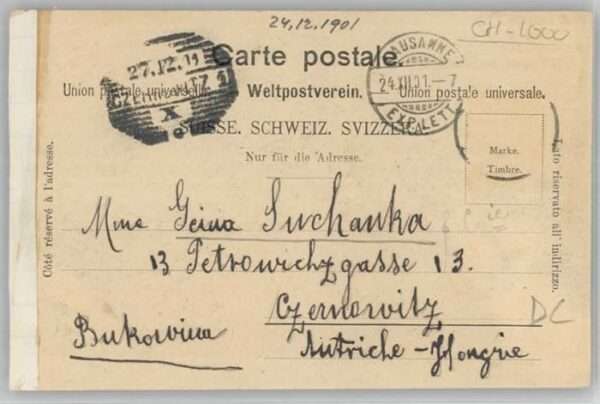 24.12.1901
CH-1000
Carte postale.
Union postale universelle. Weltpostverein. Union postale universale.
SUISSE. SCHWEIZ. SVIZZERA.
Nur für die Adresse.
27.12.
CZERNOWITZ 1
X
LAUSANNE
24.XII.01.-7
EXP. LETT.
Marke.
Timbre.
Côté réservé à l'adresse.
Lato riservato all' indirizzo.
Mme Suchanka
13 Petrowichzgasse 13.
Czernowitz
DC
Bukowina
Autriche-Hongrie